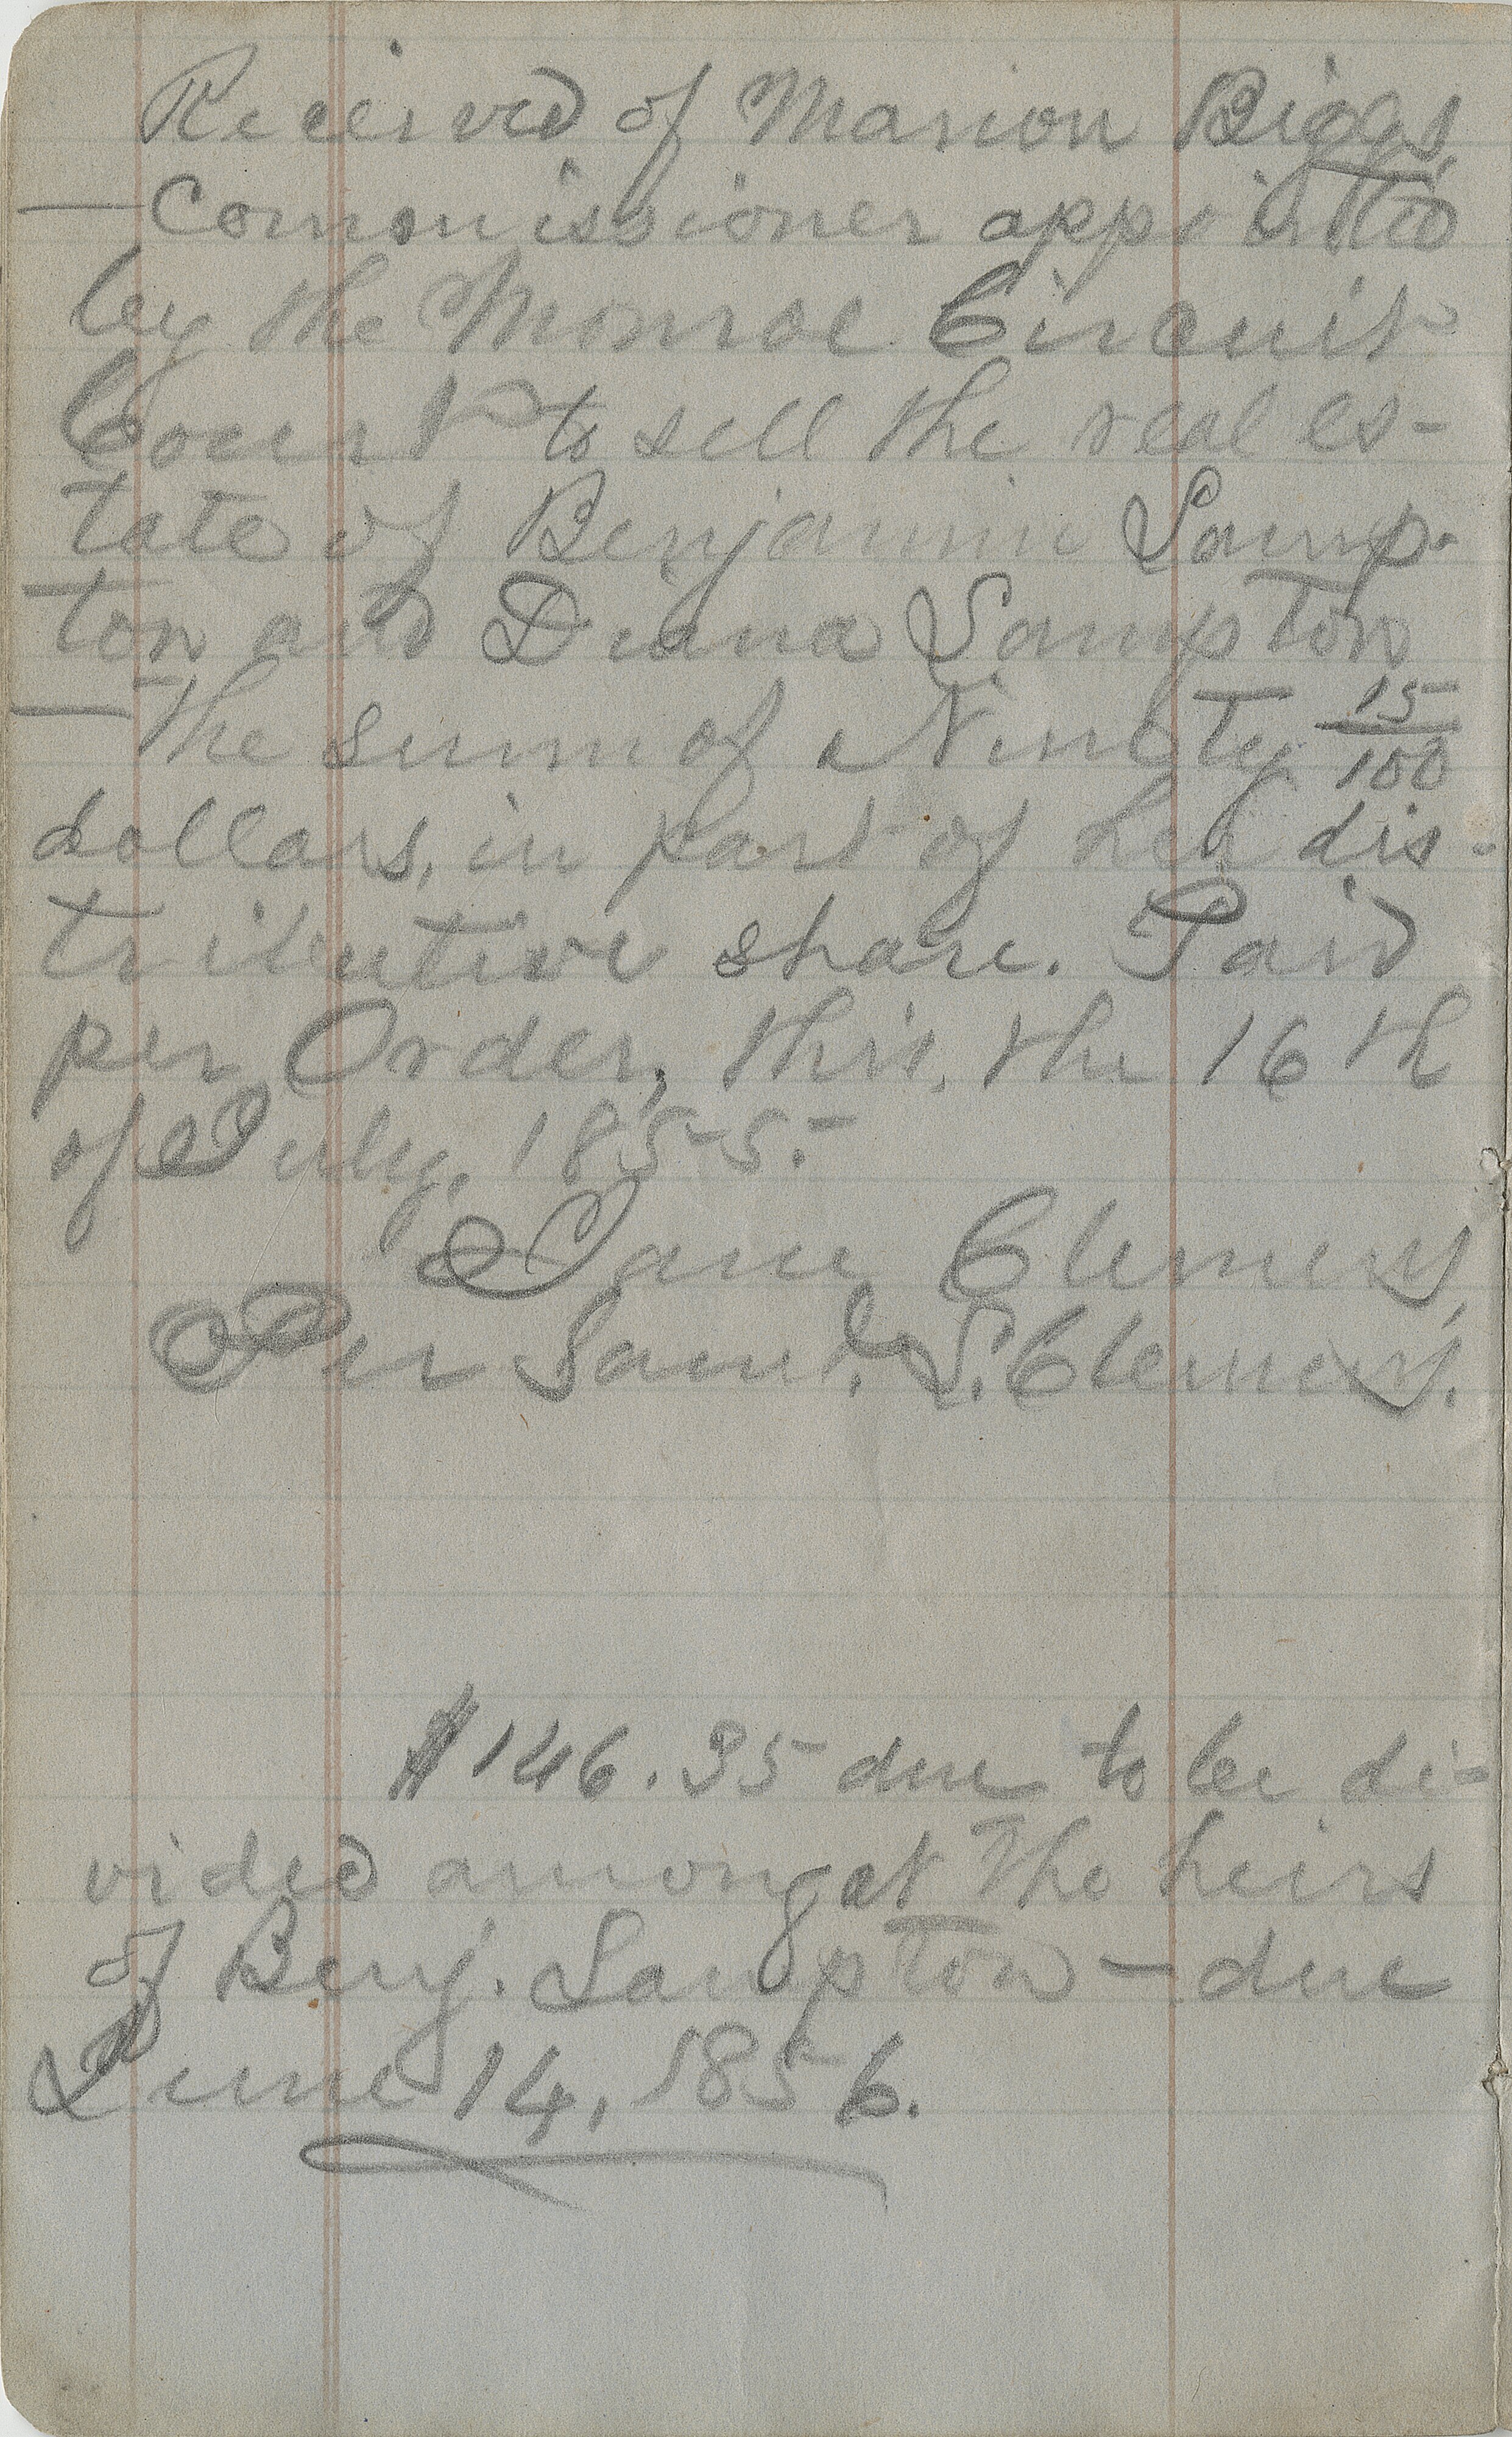 Received of Marion Biggs,
—Commissioner appointed
by the Monroe Circuit
Court to sell the real es-
tate of Benjamin Lamp-
ton and Diana Lampton
—the sum of Ninety 15/100
dollars, in part of her dis-
tributive share. Paid
per Order, this, the 16th
of July, 1855.
Jane Clemens,
Per Saml. L. Clemens.
$146.35 due to be di-
vided amongst the heirs
of Benj. Lampton — due
June 14, 1856.